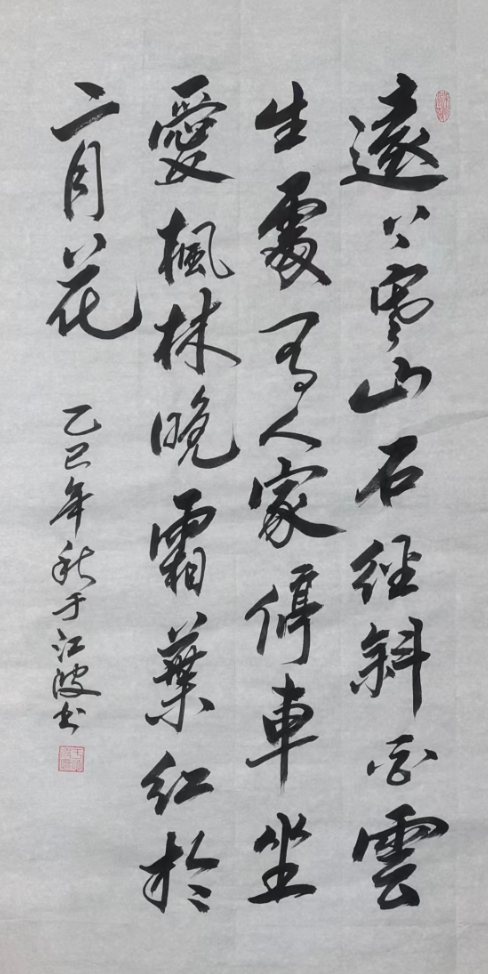 遠上寒山石經斜白雲
生處有人家停車坐
愛楓林晚霜葉紅於
二月花
乙巳年秋于江波书